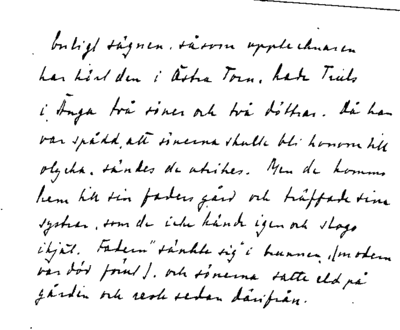 Enligt sägnen, såsom upptecknaren
har hört den i Östra Torn, hade Truls
i Änga två söner och två döttrar. Då han
var spådd, att sönerna skulle bli honom till
olycka, sändes de utrikes. Men de kommo
hem till sin faders gård och träffade sina
systrar, som de icke kände igen och slogo
ihjäl. Fadern "sänkte sig" i brunnen, (modern
var död förut). och sönerna satte eld på
gården och reste sedan därifrån.